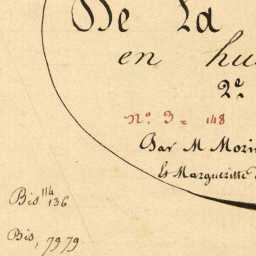 De La
en hu
2e
No. 3 = 148
Par M Mori
et Margueritte
Bis 114 136
Bis, 7979